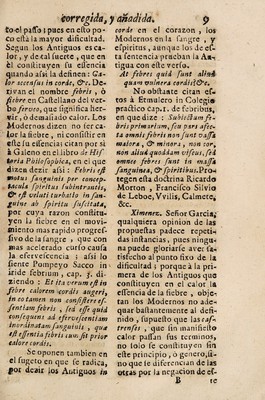 corregida, y añadida. 9
to el passo; pues en esto po-
co està la mayor dificultad.
Segun los Antiguos es ca-
lor, y de tal suerte, que en
èl constituyen su essencia
quando assi la definen: Ca-
lor accensus in corde, &c. De-
rivan el nombre febris, ò
fiebre en Castellano del ver-
bo ferveo, que significa her-
vir, ò demasiado calor. Los
Modernos dizen no ser ca-
lor la fiebre, ni consistir en
este su essencia: citan por sì
à Galeno en el libro de His-
toria Philosophica, en el que
dizen dezir assi: Febris est
motus sanguinis per concep-
tacula spiritus subintrantis,
& est veluti turbatio in san-
guine ab spiritu suscitata,
por cuya razon constitu-
yen la fiebre en el movi-
miento mas rapido progres-
sivo de la sangre, que con
mas acelerado curso causa
la efervescencia: assi lo
siente Pompeyo Sacco in
iride febrium, cap. 3. di-
ziendo: Et ita verum est in
febre calorem cordis augeri,
in eo tamen non consistere es-
sentiam febris, sed esse quid
consequens ad efervescentiam
inordinatam sanguinis, quæ
est essentia febris cum sit prior
calore cordis.
Se oponen tambien en
el sugeto en que se radica,
por dezir los Antiguos in
corde en el corazon, los
Modernos en la sangre, y
espiritus, aunque los de es-
ta sentencia prueban la An-
tigua con este verso.
At febres quid sunt aliud
quam vulnera cordis? &c.
No obstante citan es-
tos à Etmulero in Colegio
practico cap. 1. de febribus,
en que dize: Subiectum fe-
bris primarium, seu pars afec-
ta omnis febris non sunt vassa
maiora, & minora, non cor,
non aliud quoddam viscus, sed
omnes febres sunt in massa
sanguinea, & spiritibus. Pro-
tegen esta doctrina Ricardo
Morton, Francisco Silvio
de Leboe, Vvilis, Calmete,
&c.
Ximenez. Señor Garcia,
qualquiera opinion de las
propuestas padece repeti-
das instancias, pues ningu-
na puede gloriarse aver sa-
tisfecho al punto fixo de la
dificultad; porque à la pri-
mera de los Antiguos que
constituyen en el calor la
essencia de la fiebre, obje-
tan los Modernos no ade-
quar bastantemente al defi-
nido, supuesto que las cas-
trenses, que sin manifiesto
calor passan sus terminos,
no solo se constituyen sin
este principio, o genero, si-
no que se diferencian de las
otras por la negacion de es-
B te